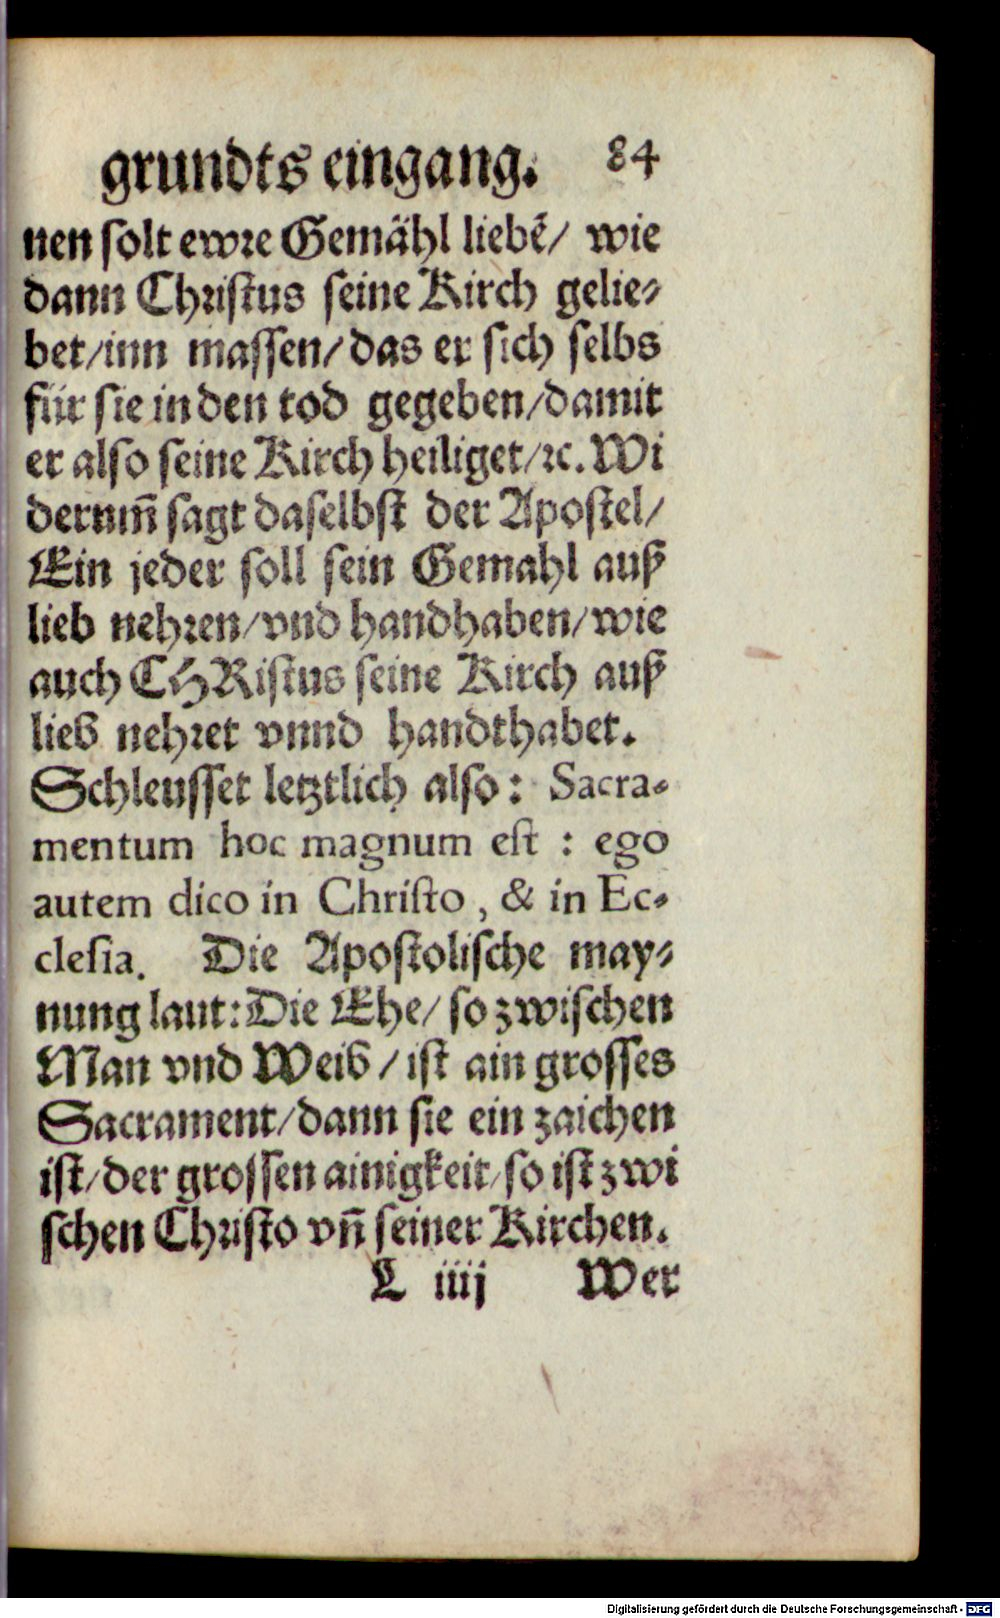 grundts eingang. 84
nen solt ewre Gemähl liebẽ/ wie
dann Christus seine Kirch gelie-
bet/inn massen/das er sich selbs
für sie in den tod gegeben/damit
er also seine Kirch heiliget/ꝛc. Wi
derum̃ sagt daselbst der Apostel/
Ein jeder soll sein Gemahl auß
lieb nehren/vnd handhaben/wie
auch CHRistus seine Kirch auß
lieb nehret vnnd handthabet.
Schleusset letztlich also: Sacra-
mentum hoc magnum est : ego
autem dico in Christo, & in Ec-
clesia. Die Apostolische may-
nung laut: Die Ehe/ so zwischen
Man vnd Weib/ist ain grosses
Sacrament/dann sie ein zaichen
ist/der grossen ainigkeit/so ist zwi
schen Christo vñ seiner Kirchen.
L iiij Wer
Digitalisierung gefördert durch die Deutsche Forschungsgemeinschaft - DFG